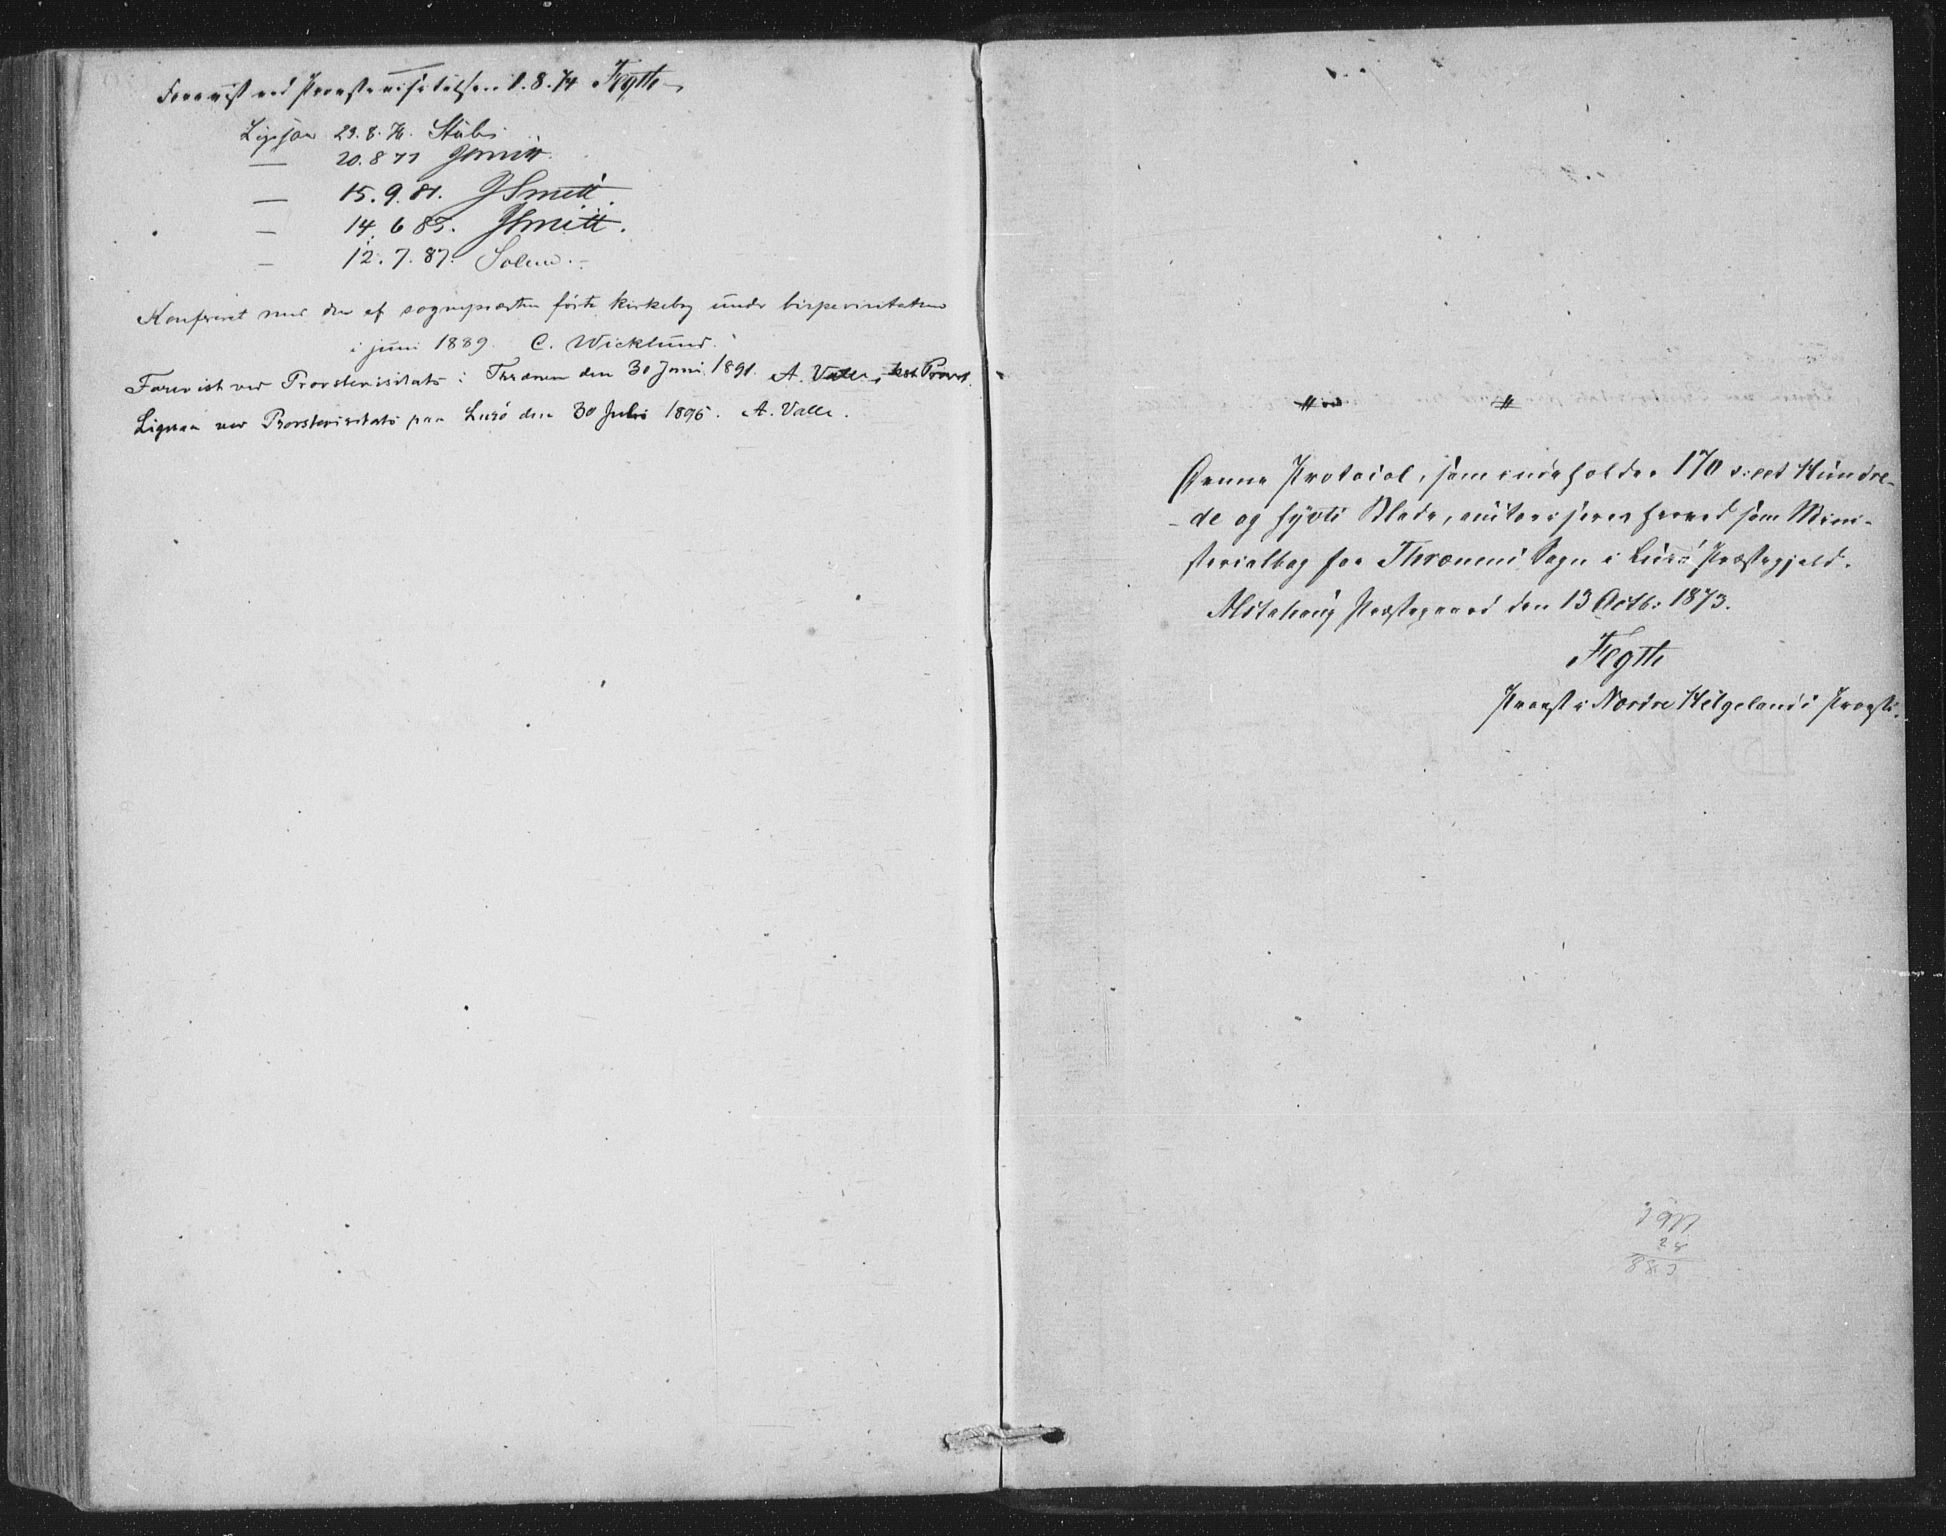 Forevist ved Provstevisitatsen 1.8.74 Fegth
Ligesaa 29.8.76. Stub
— 20.8 77 JSmitt.
— 15.9.81. JSmitt.
— 14.6 85. JSmitt.
— 12.7.87. Solem.
Konfereret med den af sognepræsten førte kirkebog under bispevisitatsen
i juni 1889. C. Wicklund.
Forevist ved Provstevisitats i Thrænen den 30 Juni 1891. A. Valle, kst. Provst.
Ligesaa ved Provstevisitats paa Lurø den 30 Juli 1895. A. Valle.
Denne Protocol, som indeholder 170 s: eet Hundre-
-de og syvti Blade, autoriseres herved som Mini-
sterialbog for Thrænens Sogn i Lurø Præstegjeld.
Alstahoug Præstegaard den 13 Octb: 1873.
Fegth
Provst i Nordre Helgelands Provsti.